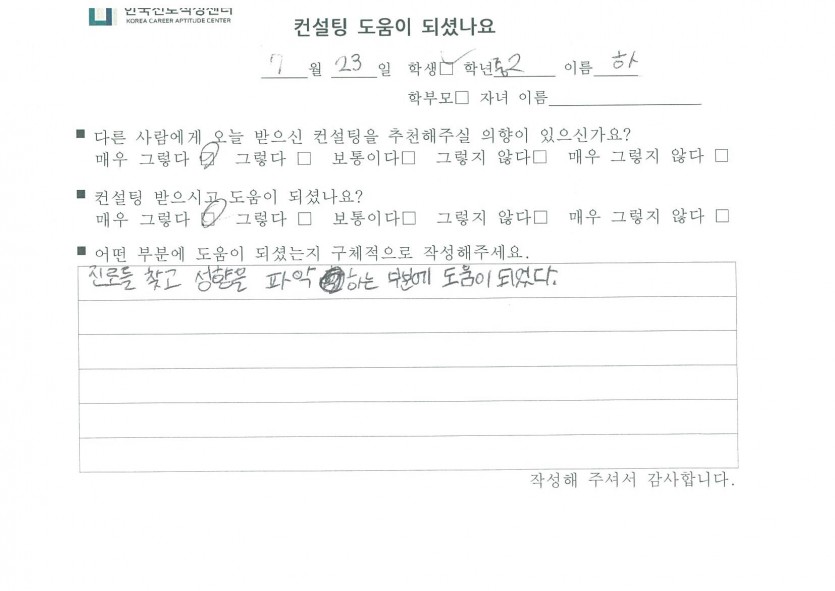 한국진로적성센터
KOREA CAREER APTITUDE CENTER
컨설팅 도움이 되셨나요
7월 23일 학생☑ 학년 중2 이름 하
학부모□ 자녀 이름
■ 다른 사람에게 오늘 받으신 컨설팅을 추천해주실 의향이 있으신가요?
매우 그렇다 ☑ 그렇다 □ 보통이다□ 그렇지 않다□ 매우 그렇지 않다 □
■ 컨설팅 받으시고 도움이 되셨나요?
매우 그렇다 ☑ 그렇다 □ 보통이다□ 그렇지 않다□ 매우 그렇지 않다 □
■ 어떤 부분에 도움이 되셨는지 구체적으로 작성해주세요.
진로를 찾고 성향을 파악 하는 부분에 도움이 되었다.
작성해 주셔서 감사합니다.